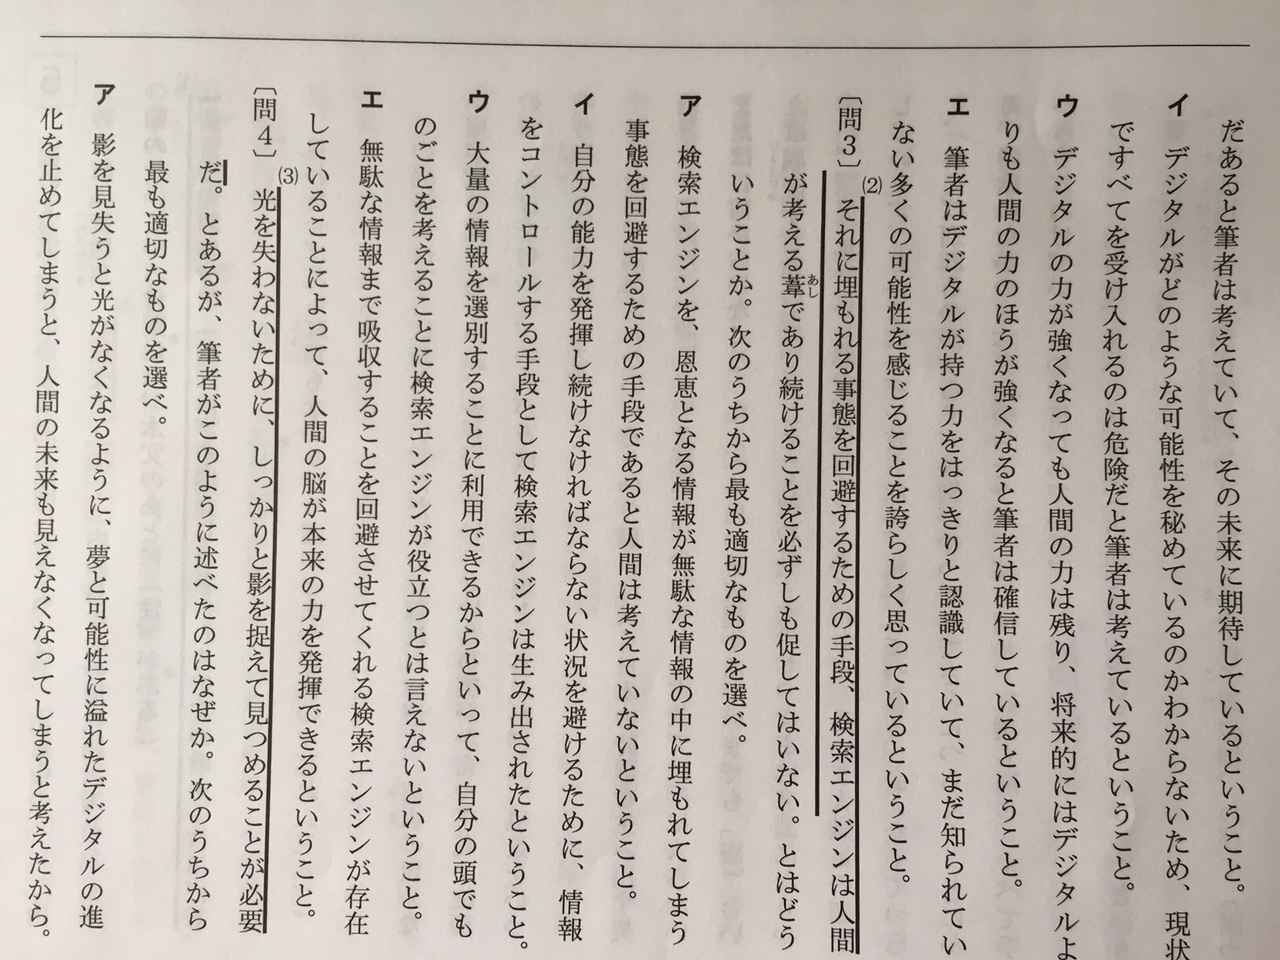 だあると筆者は考えていて、その未来に期待しているということ。
イ　デジタルがどのような可能性を秘めているのかわからないため、現状
ですべてを受け入れるのは危険だと筆者は考えているということ。
ウ　デジタルの力が強くなっても人間の力は残り、将来的にはデジタルよ
りも人間の力のほうが強くなると筆者は確信しているということ。
エ　筆者はデジタルが持つ力をはっきりと認識していて、まだ知られてい
ない多くの可能性を感じることを誇らしく思っているということ。
〔問3〕(2)それに埋もれる事態を回避するための手段、検索エンジンは人間
が考える葦(あし)であり続けることを必ずしも促してはいない。とはどう
いうことか。次のうちから最も適切なものを選べ。
ア　検索エンジンを、恩恵となる情報が無駄な情報の中に埋もれてしまう
事態を回避するための手段であると人間は考えていないということ。
イ　自分の能力を発揮し続けなければならない状況を避けるために、情報
をコントロールする手段として検索エンジンは生み出されたということ。
ウ　大量の情報を選別することに利用できるからといって、自分の頭でも
のごとを考えることに検索エンジンが役立つとは言えないということ。
エ　無駄な情報まで吸収することを回避させてくれる検索エンジンが存在
していることによって、人間の脳が本来の力を発揮できるということ。
〔問4〕(3)光を失わないために、しっかりと影を捉えて見つめることが必要
だ。とあるが、筆者がこのように述べたのはなぜか。次のうちから
最も適切なものを選べ。
ア　影を見失うと光がなくなるように、夢と可能性に溢れたデジタルの進
化を止めてしまうと、人間の未来も見えなくなってしまうと考えたから。